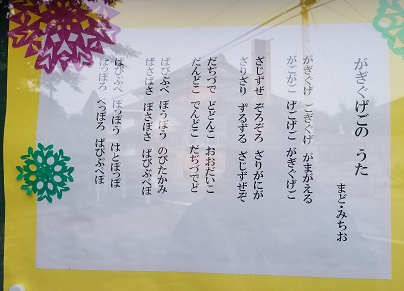 がぎぐげごの うた
まど・みちお
がぎぐげ ごぎぐげ がまがえる
がごがご げごげご がぎぐげご
ざじずぜ ぞろぞろ ざりがにが
ざりざり ずるずる ざじずぜぞ
だぢづで どどんこ おおだいこ
だんどこ でんどこ だぢづでど
ばびぶべ ぼうぼう のびたかみ
ばさばさ ぼさぼさ ばびぶべぼ
ぱぴぷぺ ぽっぽう はとぽっぽ
ぱっぽろ ぺっぽろ ぱぴぷぺぽ